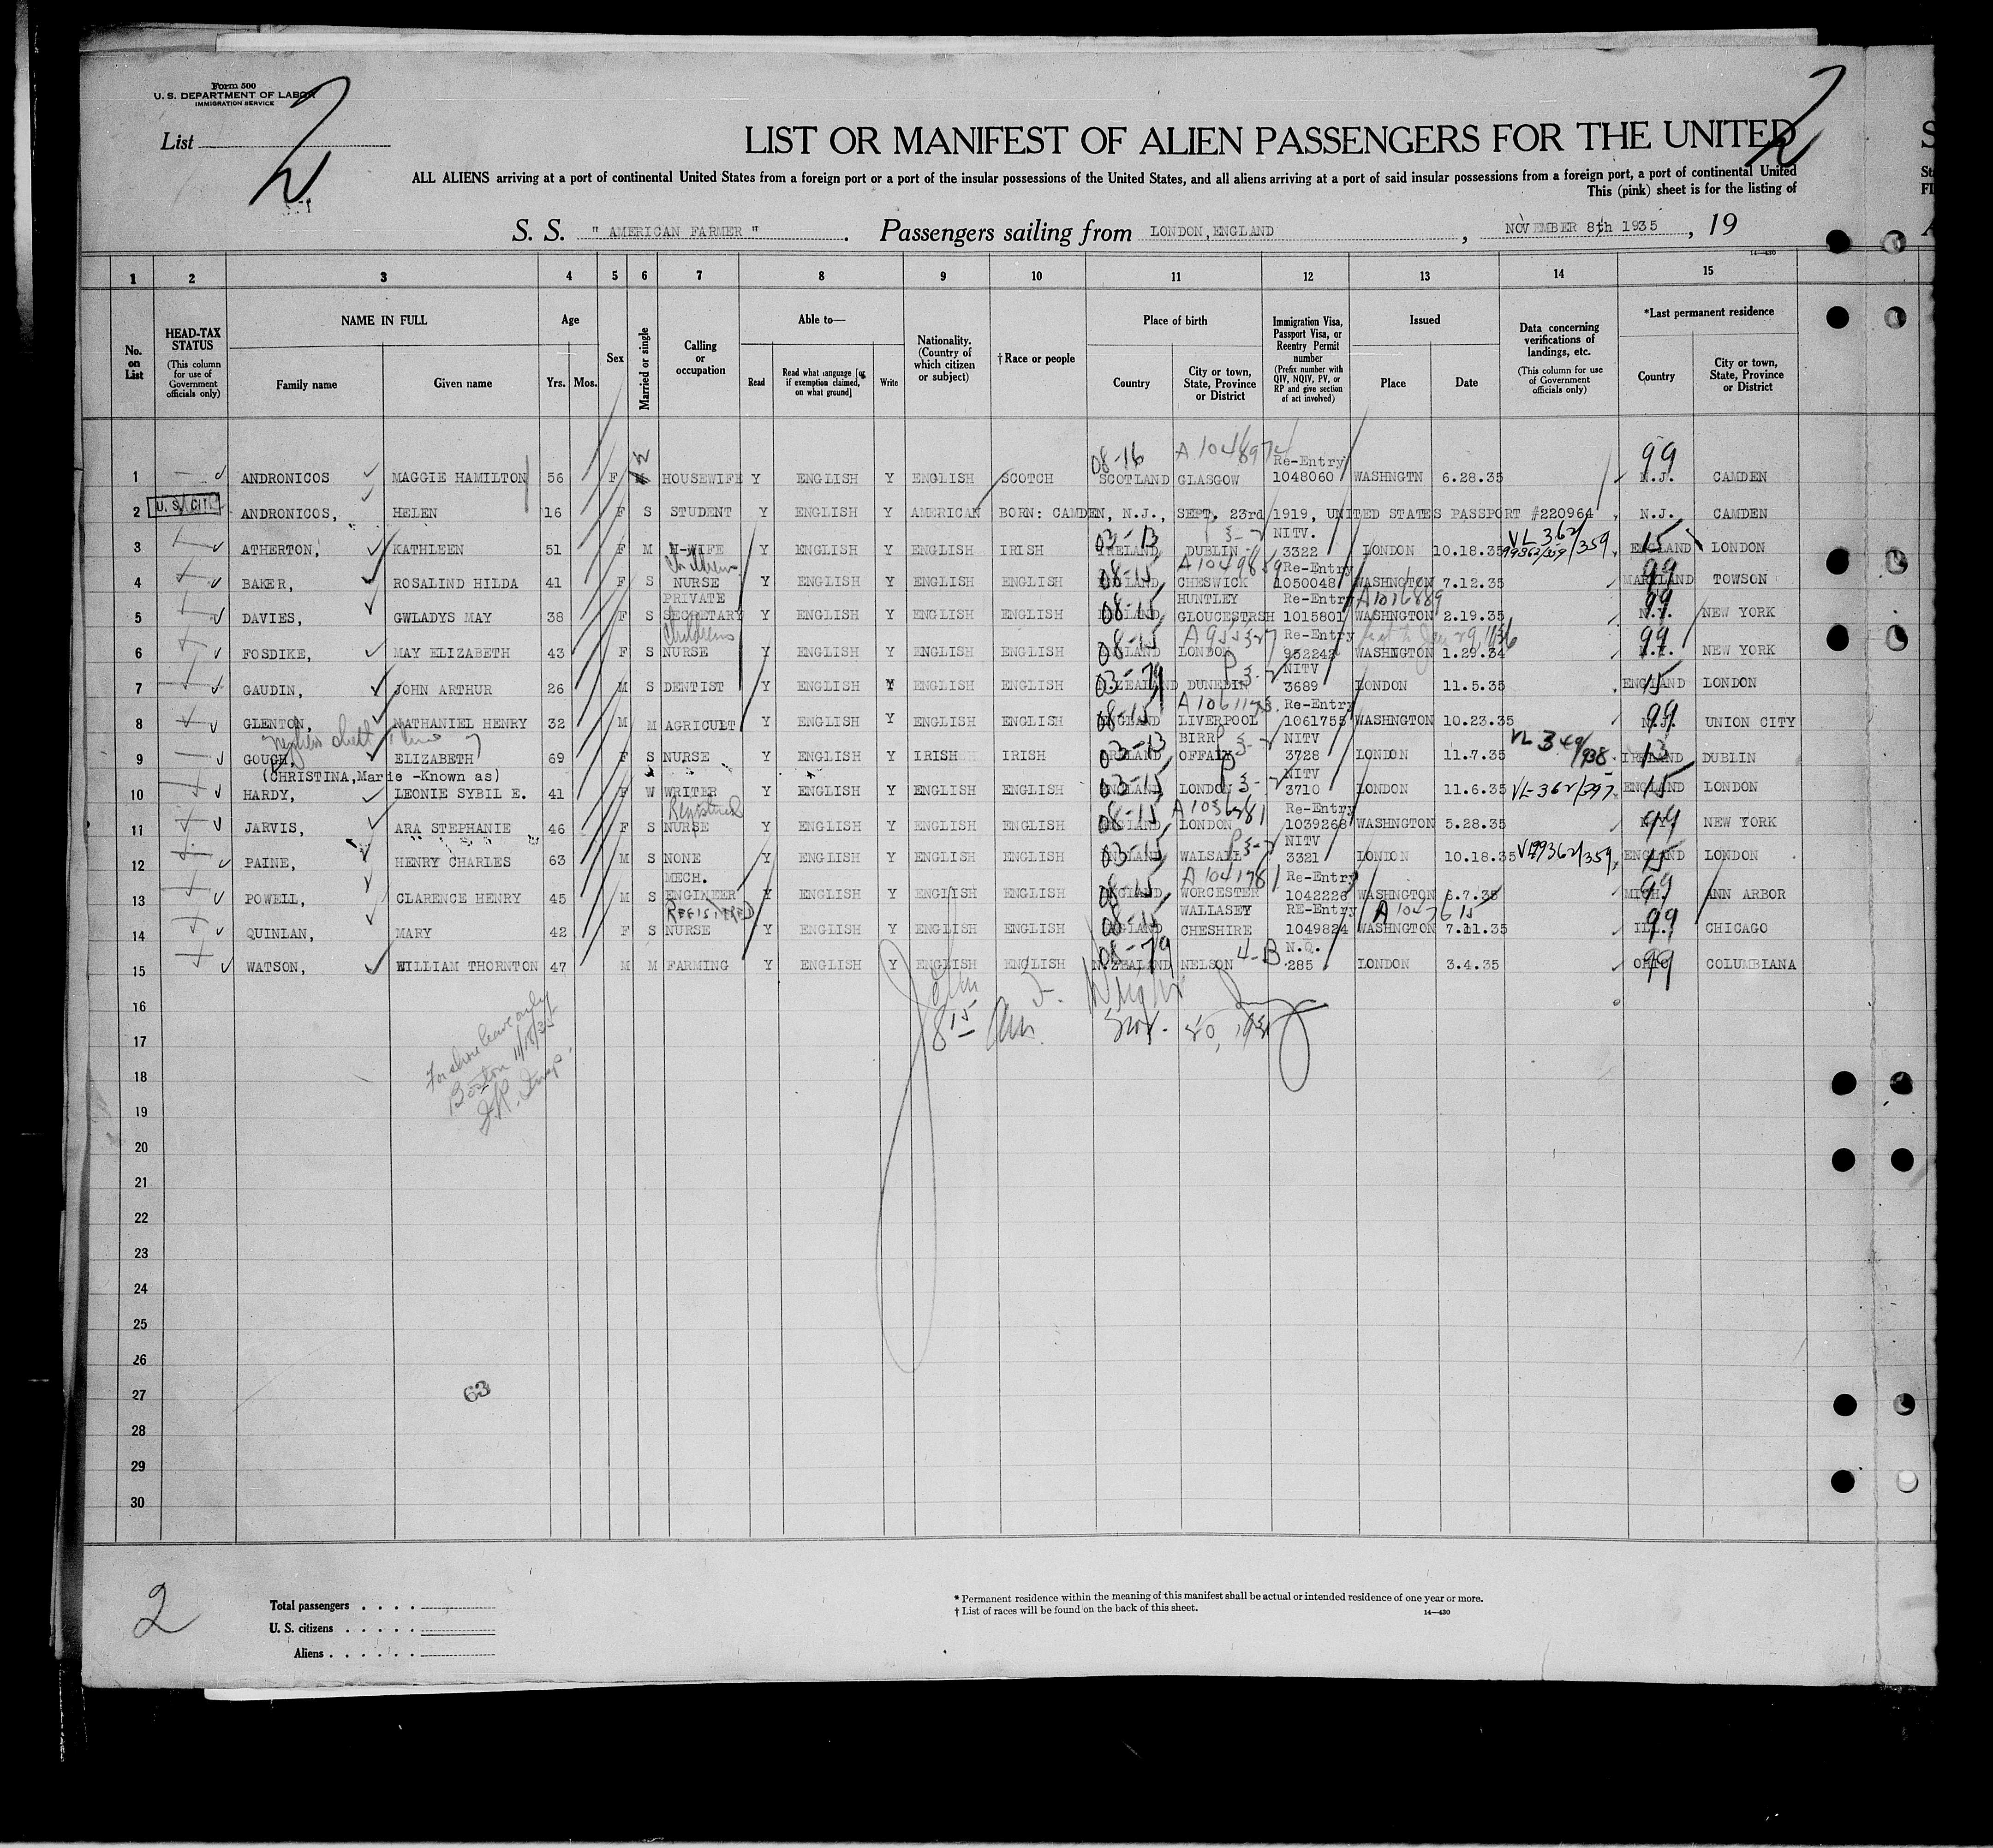 Form 500
U. S. DEPARTMENT OF LABOR
IMMIGRATION SERVICE
List
2
2
LIST OR MANIFEST OF ALIEN PASSENGERS FOR THE UNITED
ALL ALIENS arriving at a port of continental United States from a foreign port or a port of the insular possessions of the United States, and all aliens arriving at a port of said insular possessions from a foreign port, a port of continental United
This (pink) sheet is for the listing of
S. S. " AMERICAN FARMER " . Passengers sailing from LONDON,ENGLAND , NOVEMBER 8th 1935 , 19
14—430
1 2 3 4 5 6 7 8 9 10 11 12 13 14 15
No. on List
HEAD-TAX STATUS (This column for use of Government officials only)
NAME IN FULL Family name Given name
Age Yrs. Mos.
Sex
Married or single
Calling or occupation
Able to— Read Read what language [or, if exemption claimed, on what ground] Write
Nationality. (Country of which citizen or subject)
†Race or people
Place of birth Country City or town, State, Province or District
Immigration Visa, Passport Visa, or Reentry Permit number (Prefix number with QIV, NQIV, PV, or RP and give section of act involved)
Issued Place Date
Data concerning verifications of landings, etc. (This column for use of Government officials only)
*Last permanent residence Country City or town, State, Province or District
08-16 A 104897 Re-Entry 99
1 ANDRONICOS MAGGIE HAMILTON 56 F W HOUSEWIFE Y ENGLISH Y ENGLISH SCOTCH SCOTLAND GLASGOW 1048060 WASHNGTN 6.28.35 N.J. CAMDEN
U. S. CIT.
2 ANDRONICOS, HELEN 16 F S STUDENT Y ENGLISH Y AMERICAN BORN: CAMDEN, N.J., SEPT. 23rd 1919, UNITED STATES PASSPORT #220964 N.J. CAMDEN
03-13 P 3-2 NITV. VL 362/359 15
3 ATHERTON, KATHLEEN 51 F M H-WIFE Y ENGLISH Y ENGLISH IRISH IRELAND DUBLIN 3322 LONDON 10.18.35 99362/359 ENGLAND LONDON
Children 08-15 A 1049859 Re-Entry 99
4 BAKER, ROSALIND HILDA 41 F S NURSE Y ENGLISH Y ENGLISH ENGLISH ENGLAND CHESWICK 1050048 WASHNGTON 7.12.35 MARYLAND TOWSON
PRIVATE 08-15 HUNTLEY Re-Entry A1016889 99
5 DAVIES, GWLADYS MAY 38 F S SECRETARY Y ENGLISH Y ENGLISH ENGLISH ENGLAND GLOUCESTRSH 1015801 WASHNGTON 2.19.35 N.Y. NEW YORK
Childrens 08-15 Re-Entry 99
6 FOSDIKE, MAY ELIZABETH 43 F S NURSE Y ENGLISH Y ENGLISH ENGLISH ENGLAND LONDON 952242 WASHNGTON 1.29.34 N.Y. NEW YORK
03-79 P 3-2 NITV 15
7 GAUDIN, JOHN ARTHUR 26 M S DENTIST Y ENGLISH Y ENGLISH ENGLISH N.ZEALAND DUNEDIN 3689 LONDON 11.5.35 ENGLAND LONDON
08-15 Re-Entry 99
8 GLENTON, NATHANIEL HENRY 32 M M AGRICULT Y ENGLISH Y ENGLISH ENGLISH ENGLAND LIVERPOOL 1061755 WASHNGTON 10.23.35 N.J. UNION CITY
03-13 BIRR P 3-2 NITV VL 349/938 13
9 GOUGH, ELIZABETH 69 F S NURSE Y ENGLISH Y IRISH IRISH IRELAND OFFALY 3728 LONDON 11.7.35 IRELAND DUBLIN
(CHRISTINA,Marie -Known as) 03-15 P 3-2 NITV 15
10 HARDY, LEONIE SYBIL E. 41 F W WRITER Y ENGLISH Y ENGLISH ENGLISH ENGLAND LONDON 3710 LONDON 11.6.35 VL-362/397 ENGLAND LONDON
Registered 08-15 A 1036281 Re-Entry 99
11 JARVIS, ARA STEPHANIE 46 F S NURSE Y ENGLISH Y ENGLISH ENGLISH ENGLAND LONDON 1039268 WASHNGTON 5.28.35 N.Y. NEW YORK
03-15 P 3-2 NITV 15
12 PAINE, HENRY CHARLES 63 M S NONE Y ENGLISH Y ENGLISH ENGLISH ENGLAND WALSALL 3321 LONDON 10.18.35 VL99362/359 ENGLAND LONDON
MECH. 08-15 A 104178 Re-Entry 99
13 POWELL, CLARENCE HENRY 45 M S ENGINEER Y ENGLISH Y ENGLISH ENGLISH ENGLAND WORCESTER 1042226 WASHNGTON 6.7.35 MICH. ANN ARBOR
REGISTERED 08-15 WALLASEY RE-Entry A 1047615 99
14 QUINLAN, MARY 42 F S NURSE Y ENGLISH Y ENGLISH ENGLISH ENGLAND CHESHIRE 1049824 WASHNGTON 7.11.35 ILL. CHICAGO
08-79 4-B N.Q. 99
15 WATSON, WILLIAM THORNTON 47 M M FARMING Y ENGLISH Y ENGLISH ENGLISH N.ZEALAND NELSON 285 LONDON 3.4.35 OHIO COLUMBIANA
16
John F. Wright
For shore leave only
17
8 15 Am. Nov. 20, 1935
Boston 11/18/35
18
19
20
21
22
23
24
25
26
27
63
28
29
30
2
Total passengers . . . .
U. S. citizens . . . . .
Aliens . . . . . .
* Permanent residence within the meaning of this manifest shall be actual or intended residence of one year or more.
† List of races will be found on the back of this sheet.
14—430